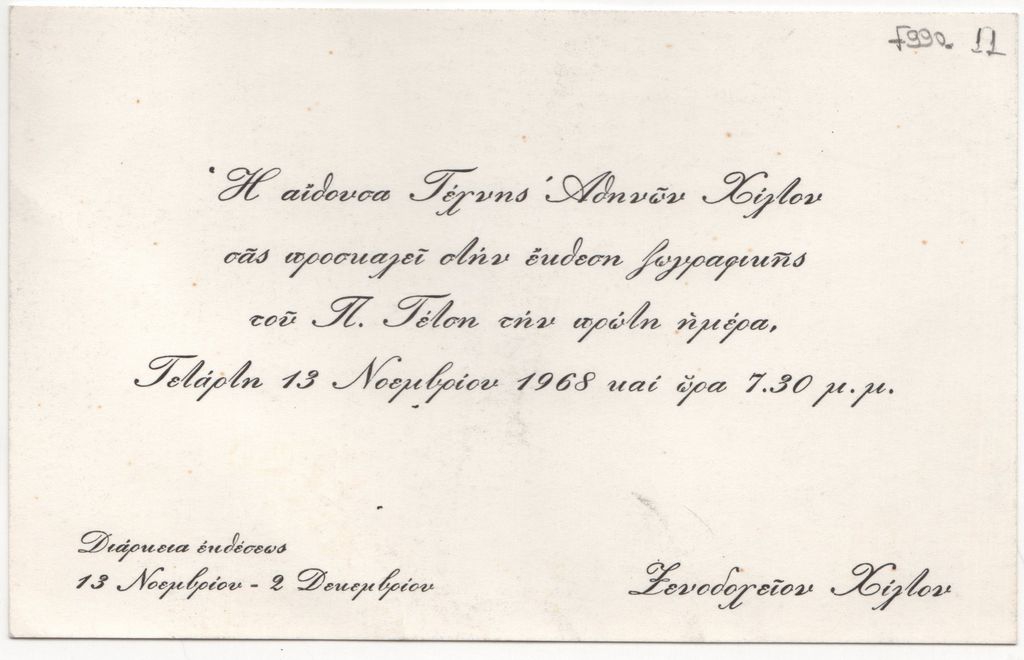 F990. 11
Ἡ αἴθουσα Τέχνης Ἀθηνῶν Χίλτον
σᾶς προσκαλεῖ στήν ἔκθεση ζωγραφικῆς
τοῦ Π. Τέτση τήν πρώτη ἡμέρα,
Τετάρτη 13 Νοεμβρίου 1968 καί ὥρα 7.30 μ.μ.
Διάρκεια ἐκθέσεως
13 Νοεμβρίου - 2 Δεκεμβρίου
Ξενοδοχεῖον Χίλτον